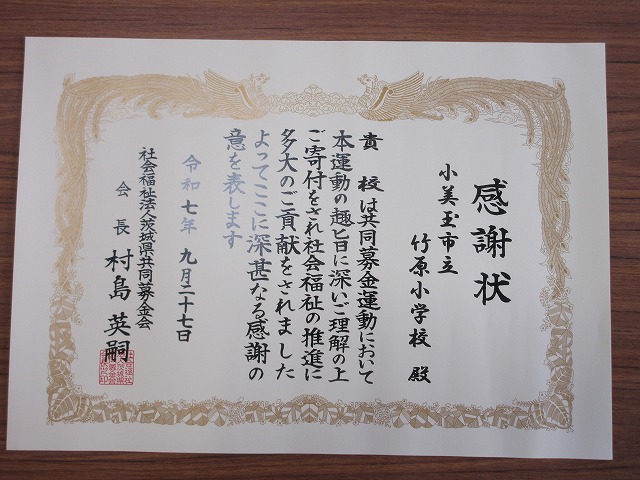 感謝状
小美玉市立
竹原小学校 殿
貴 校は共同募金運動において
本運動の趣旨に深いご理解の上
ご寄付をされ社会福祉の推進に
多大のご貢献をされました
よってここに深甚なる感謝の
意を表します
令和七年 九月二十七日
社会福祉法人茨城県共同募金会
会 長 村島 英嗣